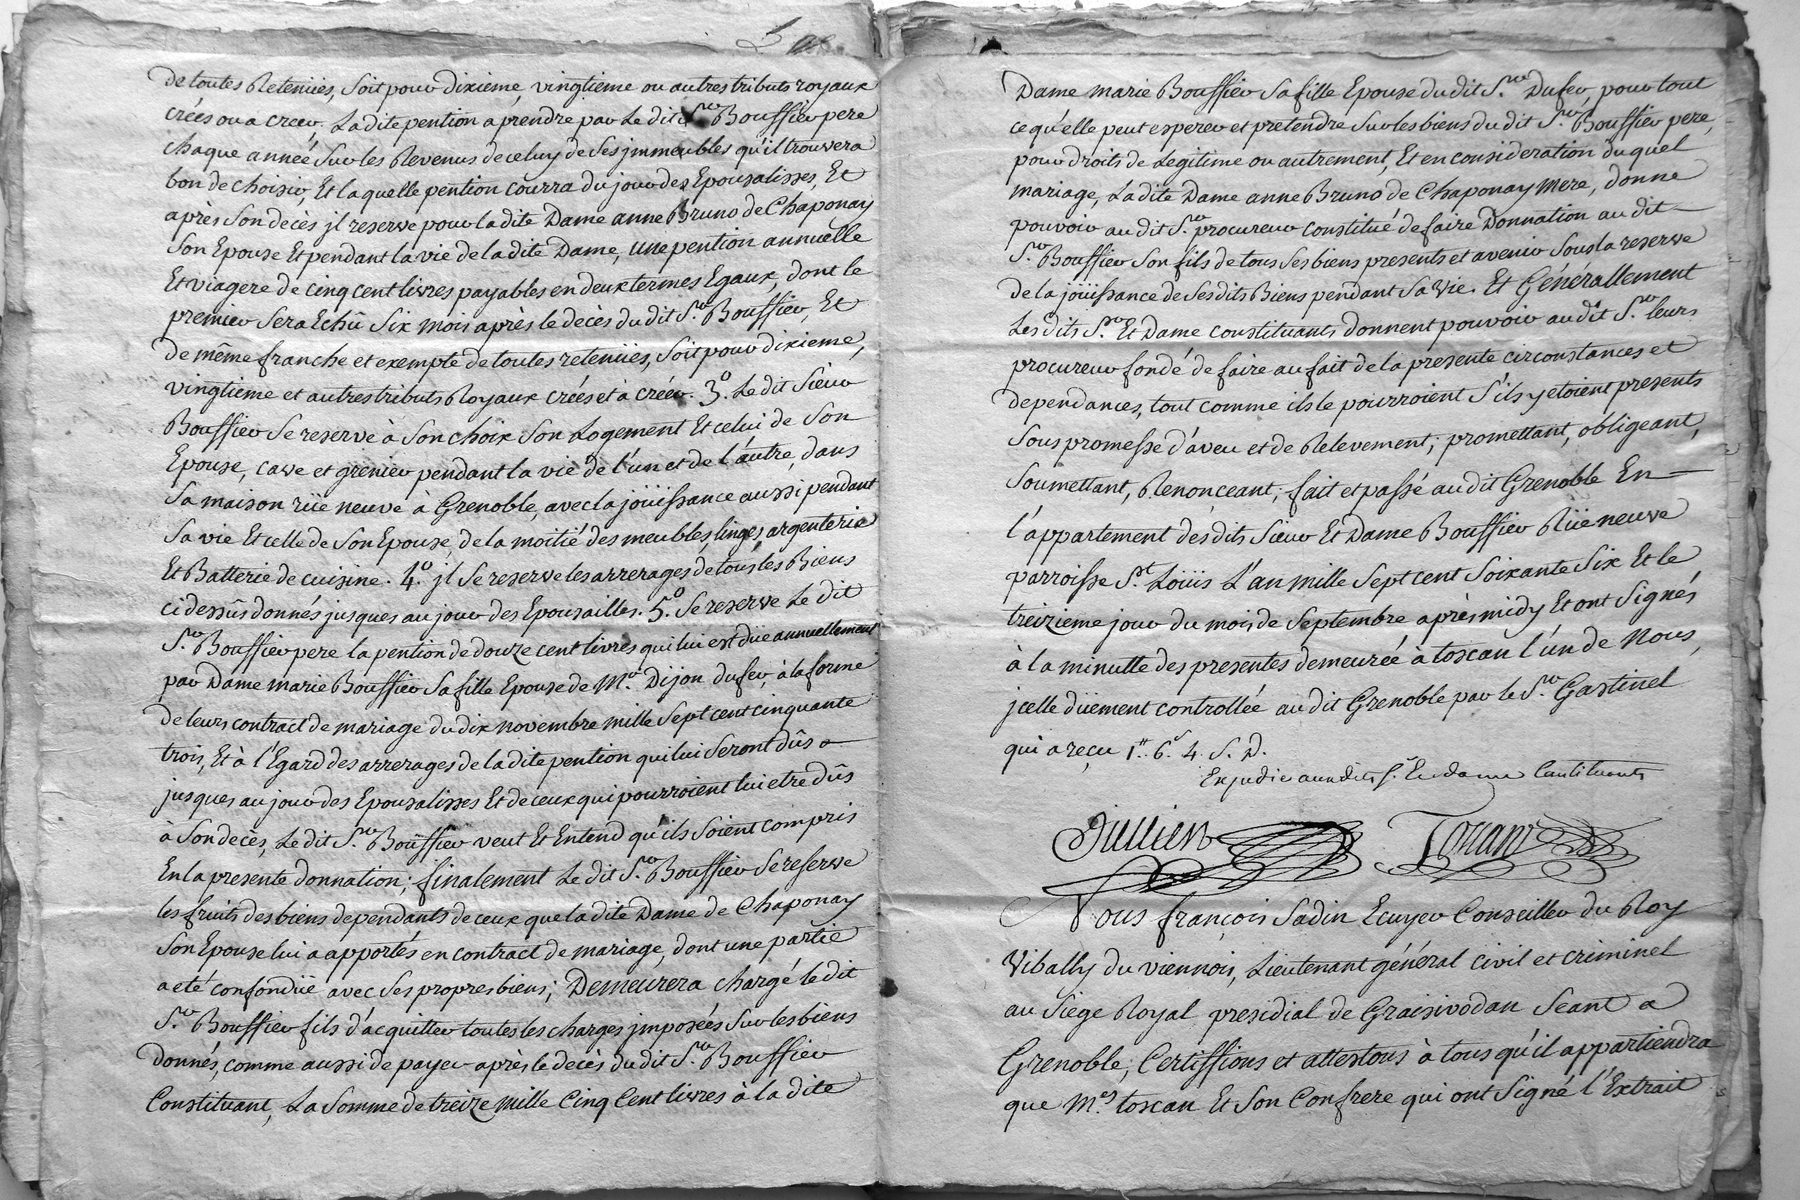 de toutes Retenües, Soit pour dixieme, vingtieme ou autres tributs royaux
créés ou a creer, La dite pention a prendre par Le dit Sr. Bouffier pere
chaque année Sur les Revenus de celuy de Ses jmmeubles qu'il trouvera
bon de choisir, Et laquelle pention courra du jour des Epousalisses, Et
après Son decès jl reserve pour la dite Dame anne Bruno de Chaponay
Son Epouse Et pendant la vie de la dite Dame, une pention annuelle
Et viagere de cinq cent livres payables en deux termes Egaux, dont le
premier Sera Echû Six mois après le decès du dit Sr. Bouffier, Et
de même franche et exempte de toutes retenües, Soit pour dixieme,
vingtieme et autres tributs Royaux créés et à créér. 3o. Le dit Sieur
Bouffier Se reserve à Son choix Son Logement Et celui de Son
Epouse, cave et grenier pendant la vie de l'un et de l'autre, dans
Sa maison rüe neuve à Grenoble, avec la joüissance aussi pendant
Sa vie Et celle de Son Epouse, de la moitié des meubles, linges, argenterie
Et Batterie de cuisine. 4o. jl Se reserve les arrerages de tous les Biens
ci dessûs donnés jusques au jour des Epousailles. 5o. Se reserve Le dit
Sr. Bouffier pere la pention de douze cent livres qui lui est düe annuellement
par Dame marie Bouffier Sa fille Epouse de Mr. Dijon dufer, à la forme
de leurs contract de mariage du dix novembre mille Sept cent cinquante
trois, Et à l'Egard des arrerages de la dite pention qui lui Seront dûs
jusques au jour des Epousalisses Et de ceux qui pourroient lui etre dûs
à Son decès, Le dit Sr. Bouffier veut Et Entend qu'ils Soient compris
En la presente donnation; finalement Le dit Sr. Bouffier Se reserve
les fruits des biens dependants de ceux que la dite Dame de Chaponay
Son Epouse lui a apportés en contract de mariage, dont une partie
a eté confondüe avec Ses propres biens; Demeurera chargé le dit
Sr. Bouffier fils d'acquitter toutes les charges jmposées Sur les biens
donnés, comme aussi de payer après le decès du dit Sr. Bouffier
Constituant, La Somme de treize mille Cinq Cent livres à la dite
Dame marie Bouffier Sa fille Epouse du dit Sr. Dufer, pour tout
ce qu'elle peut esperer et pretendre Sur les biens du dit Sr. Bouffier pere,
pour droits de Legitime ou autrement, Et en consideration du quel
mariage, La dite Dame anne Bruno de Chaponay mere, donne
pouvoir au dit Sr. procureur constitué de faire Donnation au dit
Sr. Bouffier Son fils de tous Ses biens presents et avenir Sous la reserve
de la joüissance de Ses dits Biens pendant Sa vie. Et Générallement
Les dits Sr. Et Dame constituants donnent pouvoir au dit Sr. leurs
procureur fondé de faire au fait de la presente circonstances et
dependances, tout comme ils le pourroient S'ils y etoient presents
Sous promesse d'aveu et de Relevement; promettant, obligeant,
Soumettant, Renonceant; fait et passé au dit Grenoble En
l'appartement des dits Sieur Et Dame Bouffier Rüe neuve
parroisse St. Loüis L'an mille Sept cent Soixante Six Et le
treizieme jour du mois de Septembre après midy Et ont Signés
à la minutte des presentes demeurée à toscan l'un de Nous,
jcelle düement controllée au dit Grenoble par le Sr. Gastinel
qui a reçu 1tt. 6s. 4. S. D.
Expedié auxdits Sr. Et dame Constituants
Jullien Toscan
Nous françois Sadin Ecuyer Conseiller du Roy
Vibally du viennois, Lieutenant général civil et criminel
au Siege Royal presidial de Graisivodan Seant a
Grenoble, Certiffions et attestons à tous qu'il appartiendra
que Mes. toscan Et Son Confrere qui ont Signé l'Extrait